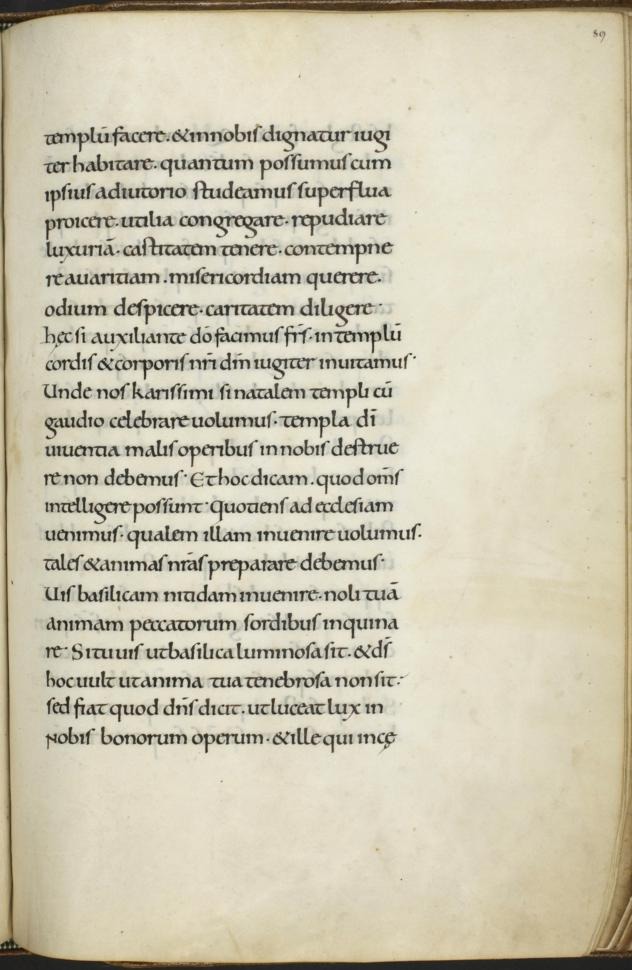 89
templū facere. & in nobis dignatur iugi
ter habitare. quantum possumus cum
ipsius adiutorio studeamus superflua
proicere. utilia congregare. repudiare
luxuriā. castitatem tenere. contempne
re auaritiam. misericordiam querere.
odium despicere. caritatem diligere.
hęc si auxiliante dō facimus fr̄s. in templū
cordis & corporis nr̄i dm̄ iugiter inuitamus.
Unde nos karissimi si natalem templi cū
gaudio celebrare uolumus. templa dī
uiuentia malis operibus in nobis destrue
re non debemus. Et hoc dicam. quod om̄s
intelligere possunt. quotiens ad ecclesiam
uenimus. qualem illam inuenire uolumus.
tales & animas nr̄as preparare debemus.
Uis basilicam nitidam inuenire. noli tuā
animam peccatorum sordibus inquina
re. Si tu uis ut basilica luminosa sit. & ds̄
hoc uult ut anima tua tenebrosa non sit.
sed fiat quod dn̄s dicit. ut luceat lux in
Nobis bonorum operum. & ille qui in cę